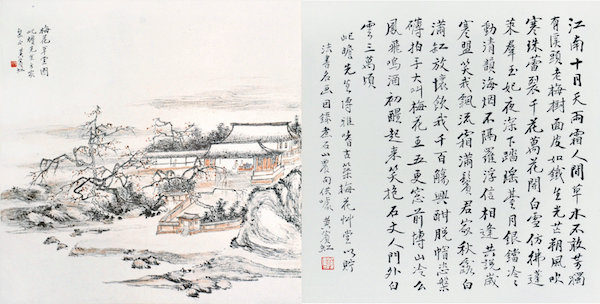 梅花草堂圖
屺瞻先生方家
粲正 黃賓虹
江南十月天雨霜人間草木不敢芳獨
有溪頭老梅樹面皮如鐵生光芒朔風吹
寒珠蕾裂千花萬花開白雪仿彿蓬
萊羣玉妃夜深下踏瑤臺月銀鐺泠泠
動清韻海烟不隔羅浮信相逢共說歲
寒盟笑我飄流霜滿鬢君家秋露白
滿缸放懷飲我千百觴興酣脫帽恣槃
礴拍手大叫梅花王五更窗前博山冷么
鳳飛鳴酒初醒起來笑抱石丈人門外白
雲三萬頃
屺瞻先生博雅嗜古築梅花艸堂以貯
法書名画因錄煮石山農句供噱 黃賓虹